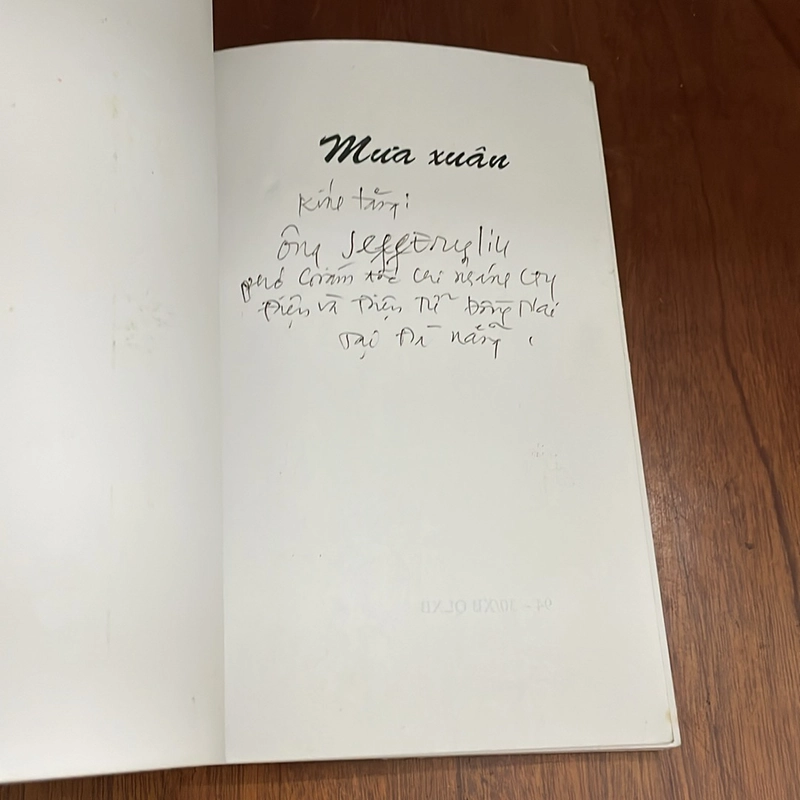 Mưa xuân
Kính tặng:
Ông Jeffery liu
phó Giám đốc chi nhánh Cty
Điện và Điện Tử Đồng Nai
Tại Đà nẵng.